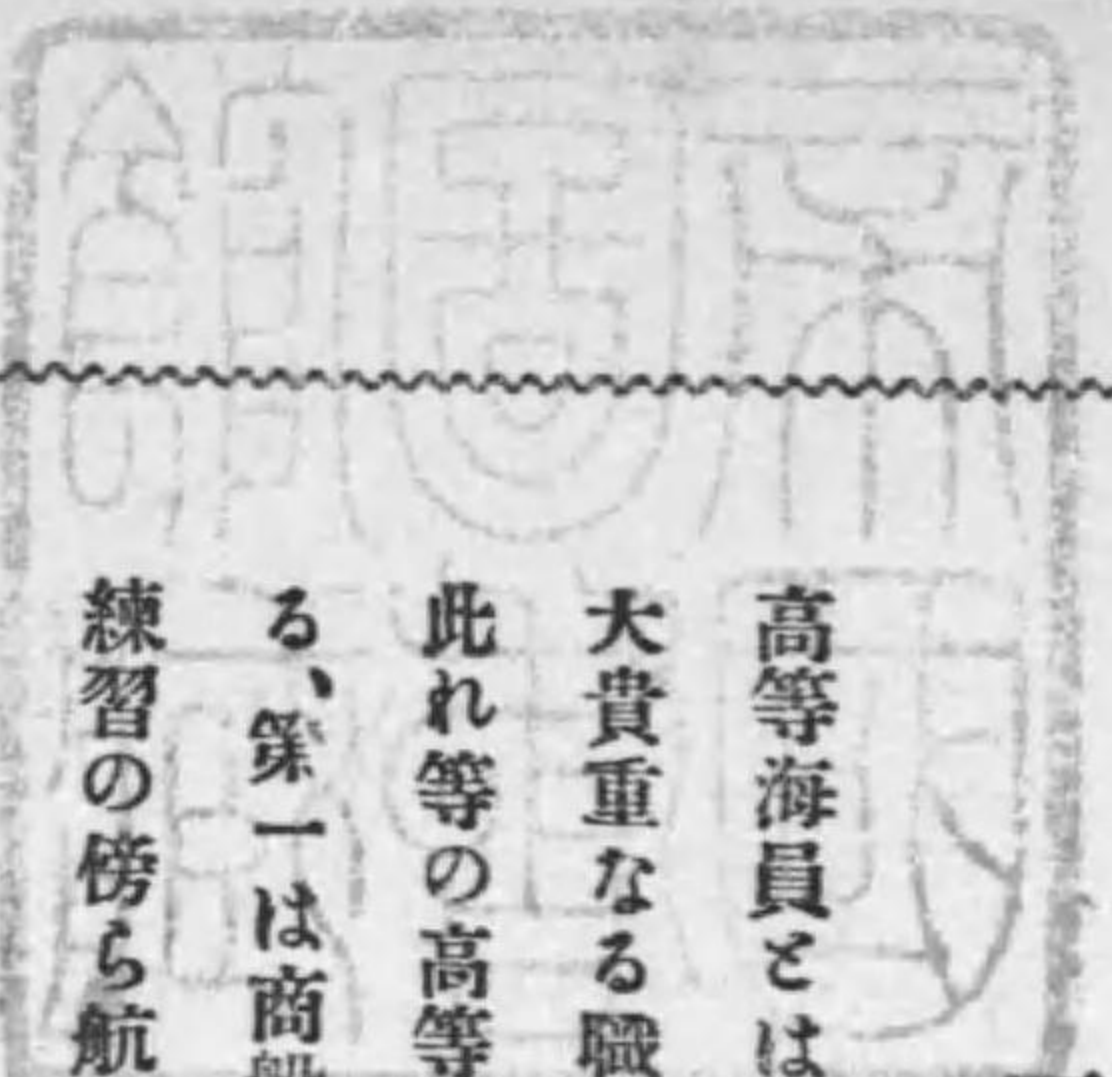 高等海員とは
大貴重なる職
此れ等の高等
る、第一は商船
練習の傍ら航